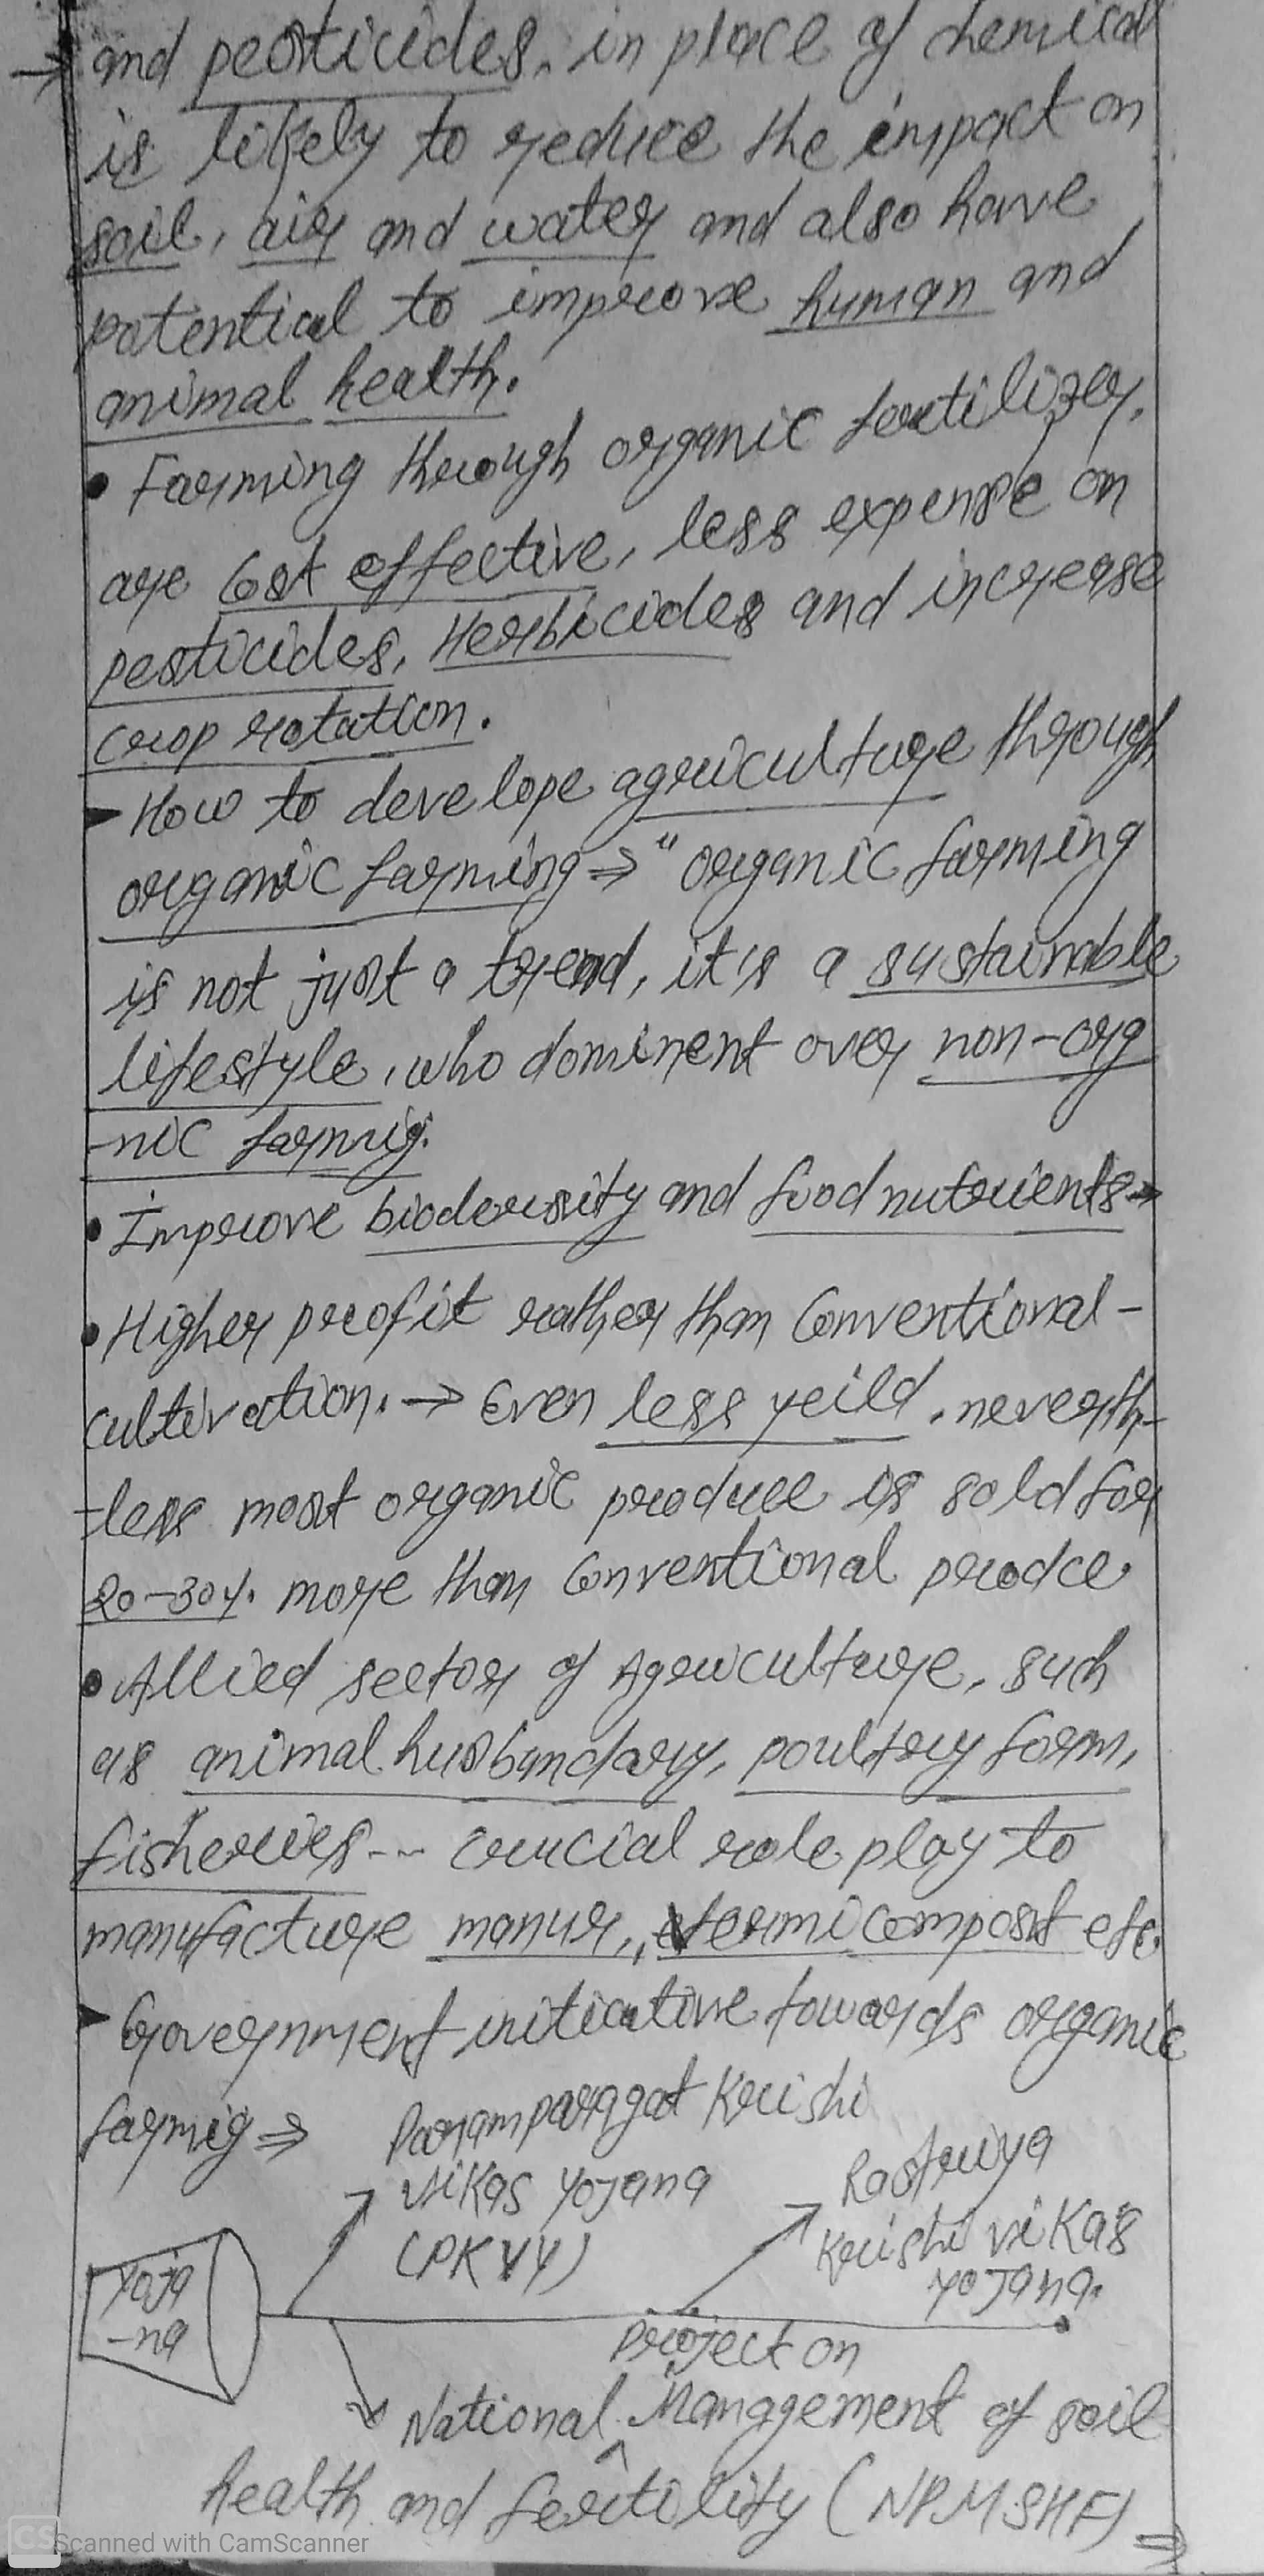 → and pesticides, in place of chemical
is likely to reduce the impact on
soil, air and water and also have
potential to improve human and
animal health.
• Farming through organic fertilizer,
are cost effective, less expense on
pesticides, Herbicides and increase
crop rotation.
► How to develope agriculture through
organic farming ⇒ "organic farming
is not just a trend, it's a sustainable
lifestyle, who dominent over non-org
-nic farmig.
• Improve bioderisity and food nutrients →
• Higher profit rather than Conventional-
cultivation. → Even less yeild, neverth-
-less most organic produce is sold for
20-30%. more than Conventional prodce.
• Allied sector of Agriculture, such
as animal husbandary, poultry form,
fisheries--- crucial role play to
manufacture manur, vermicomposit etc.
► Government initiative towards organic
farmig ⇒ Paramparagat Krishi
Vikas Yojana
(PKVY)
Rastriya
Krishi vikas
yojana.
Yoja
-na
Project on
National Management of soil
health and fertility (NPMSHF) ⇒
CS Scanned with CamScanner